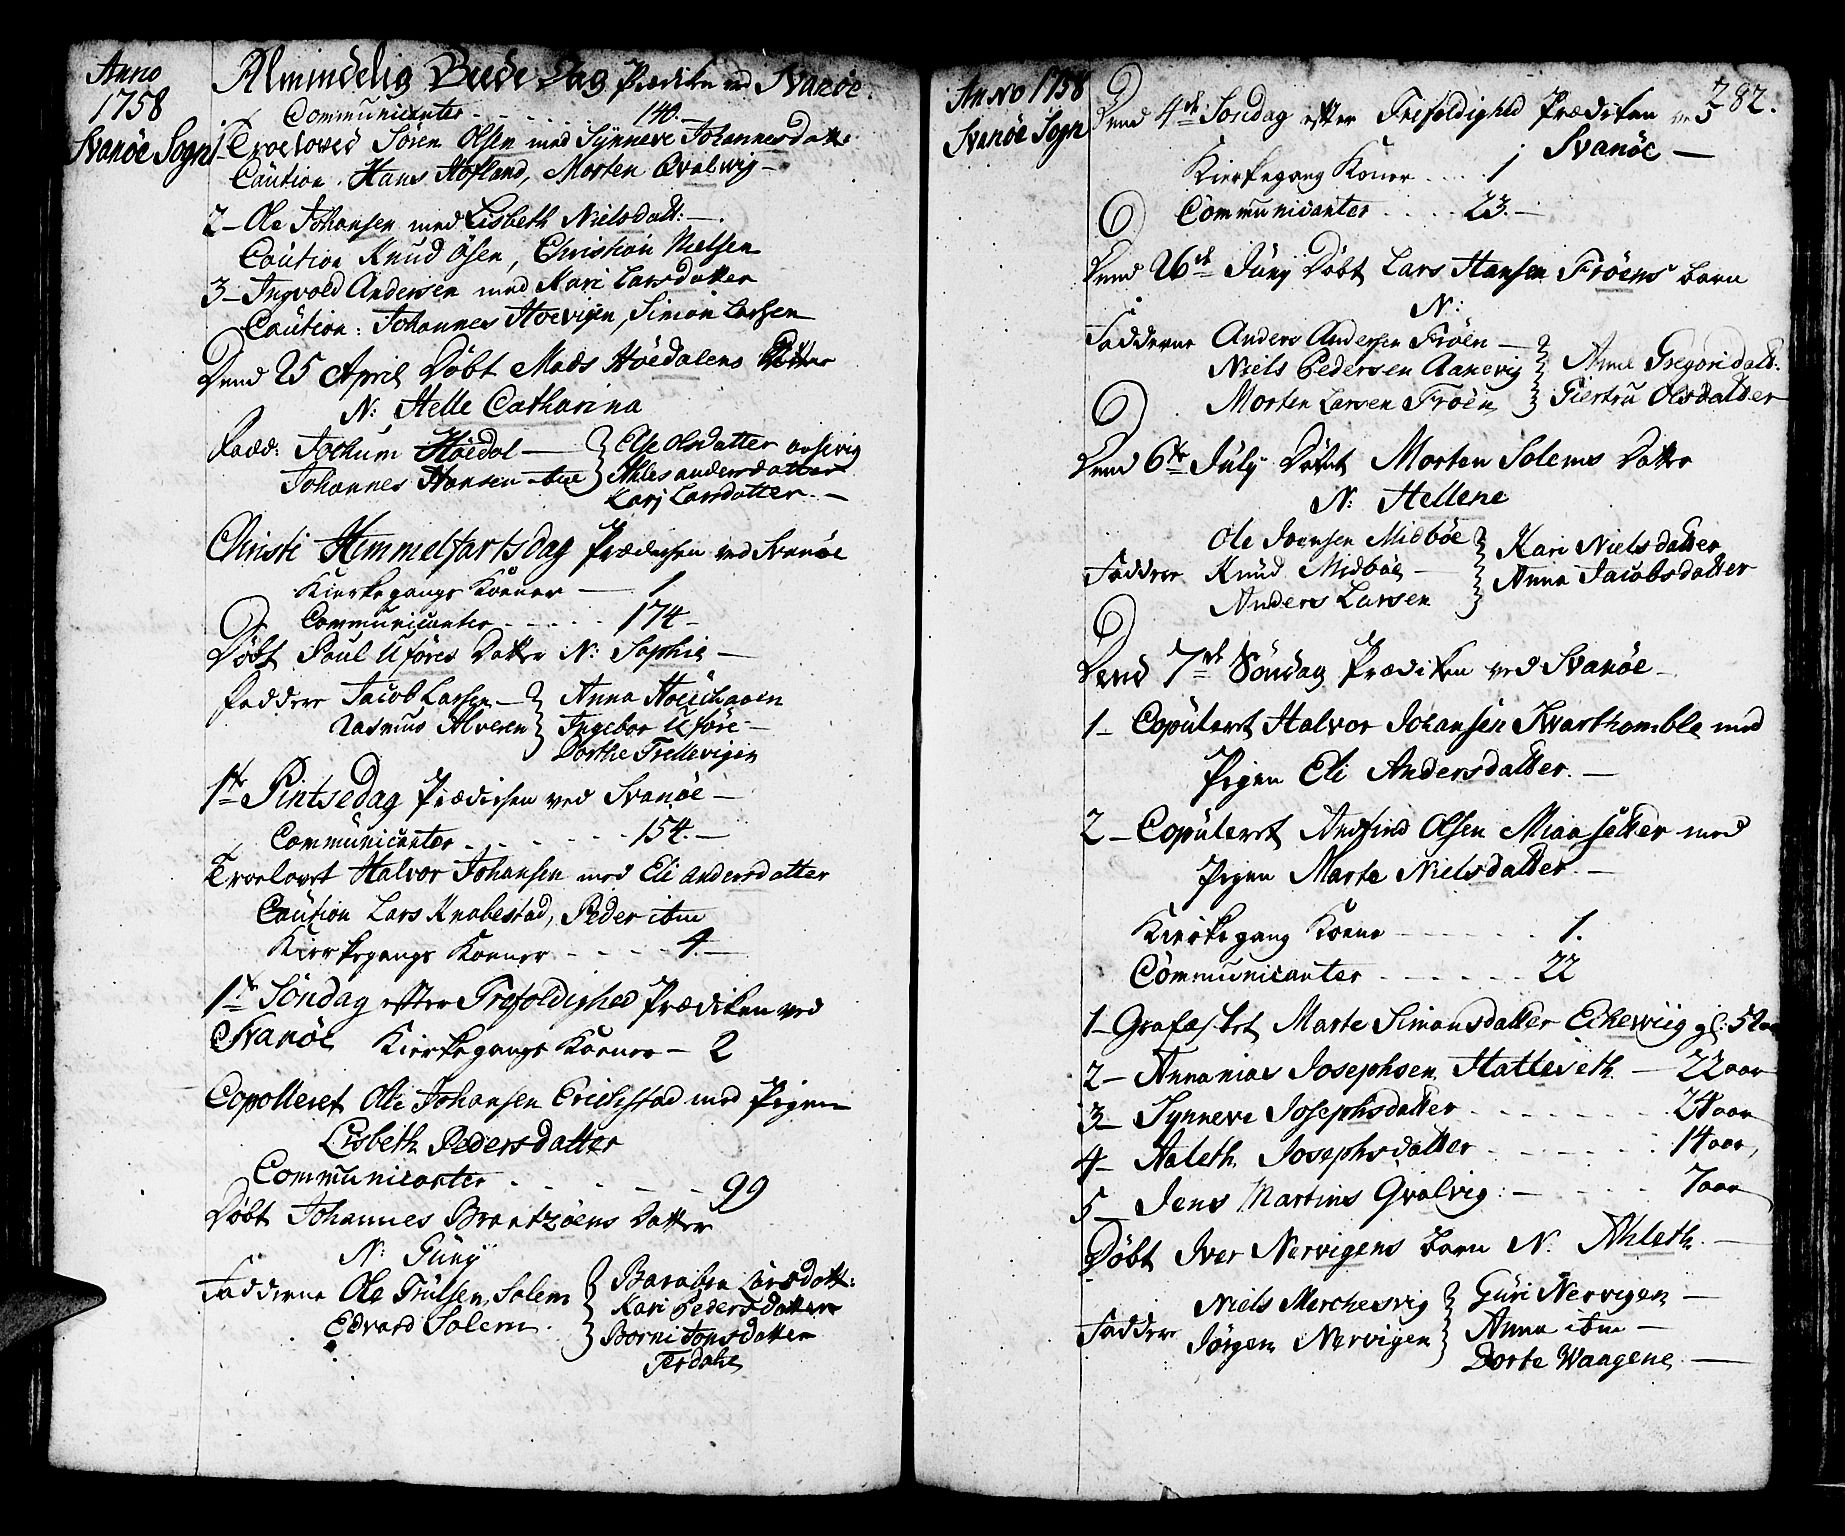 Anno
1758
Svanöe Sogn
Almindelig Beede Dag Prædiken ved Svanöe.
Communicanter - - - - - 140.
1- Troeloved Sören Olsen med Synneve Johannesdatt:
Caution. Hans Hofland, Morten Qvalwig -
2- Ole Johansen med Lisbeth Nielsdatt: -
Caution Knud Ösen, Christian Nielsen
3- Ingvold Andersen med Kari Larsdatter
Caution: Johannes Hoevigen, Simon Larsen
Dend 25 April Döbt Mads Höedalens Datter
N: Helle Catharina
Fadd: Jochum Höedal - Else Olsdatter
Johannes Hansen ibm Ahlesandersdatter
Karj Larsdatter. -
Christi Himmelfartsdag Prædichen ved Svanöe
Kierkegangs Koener - 1
Communicanter - - - - - 174 -
Döbt Paul Uföres Datter N: Sophie -
Faddere Jacob Larsen - Anna Hoeshavin
Rasmus Alveren Ingebor Uföre -
Dorthe Trellevigen
1te Pintsedag Prædichen ved Svanöe -
Communicanter - - - - - 154. -
Troelovet Halvor Johansen med Eli Andersdatter
Caution Lars Knabestad, Peder ibm
Kierkegangs Koener - - - - 4. -
1te Söndag efter Trefoldighed Prædiken ved
Svanöe Kierkegangs Koener - 2
Copolleret Ole Johansen Erichstad med Pigen
Lisbeth Pedersdatter
Communicanter - - - - - 99
Döbt Johannes Brantzöens Datter
N: Guny
Fadderne Ole Trulsen Solem Barabra Larsdatt:
Kari Pedersdatter
Edvard Solem. Borni Jonsdatter
Terdahl
Anno 1758
Svanöe Sogn
282.
Dend 4de Söndag efter Trefoldighed Prædiken ved
Svanöe -
Kierkegang Koner - - - - 1
Communicanter - - - - 23. -
Dend 26de Juny Döbt Lars Hansen Fröens barn
N:
Fadderne Anders Andersen Fröen -
Niels Pedersen Aanevig Anne Gregoridatt:
Morten Larsen Fröen Giertru Olsdatter
Dend 6te July Döbt Morten Solems Datter
N: Hellene
Ole Joensen Midböe Kari Nielsdatter
Faddere Knud Midböe - Anna Jacobsdatter
Anders Larsen
Dend 7de Söndag Prædiken ved Svanöe -
1- Copuleret Halvor Johansen Svarthomble med
Pigen Eli Andersdatter. -
2- Copuleret Andfind Olsen Miaasetter med
Pigen Marte Nielsdatter. -
Kierkegang Koene - - - - - - 1.
Communicanter - - - - - 22
1- Grafæstet Marte Simonsdatter Echewiig gl: 52 aar
2- Annanias Josephsen Hatleseth - 22 aar
3- Synneve Josephsdatter - - - - - 24 aar
4- Aaleth Josephsdatter - - - - - 14 aar,
5- Jens Martins Qvalvig: - - - - 7 aar
Döbt Iver Nervigens barn N. Ahleth. -
Niels Merchesvig Guri Nervigen -
Faddere Jörgen Nervigen Anna ibm -
Dorte Waagene. -